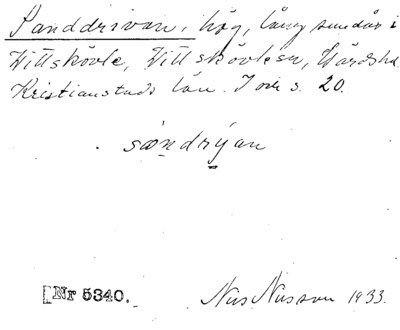 Sanddrivan, hög, lång sandås i
Vittskövle, Vittskövle sn, Gärds hd
Kristianstads län. I oms. 20.
sandrýan
[Nr 5340.
Nils Nilsson 1933.